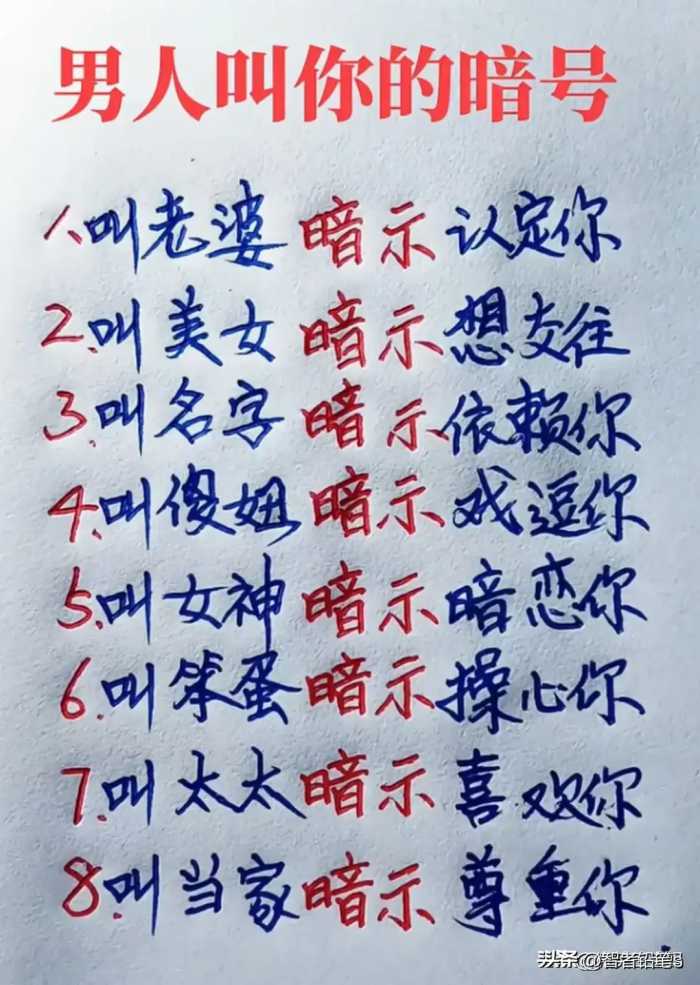 男人叫你的暗号
1、叫老婆 暗示 认定你
2、叫美女 暗示 想交往
3、叫名字 暗示 依赖你
4、叫傻妞 暗示 戏逗你
5、叫女神 暗示 暗恋你
6、叫笨蛋 暗示 操心你
7、叫太太 暗示 喜欢你
8、叫当家 暗示 尊重你
头条 @智者铅笔